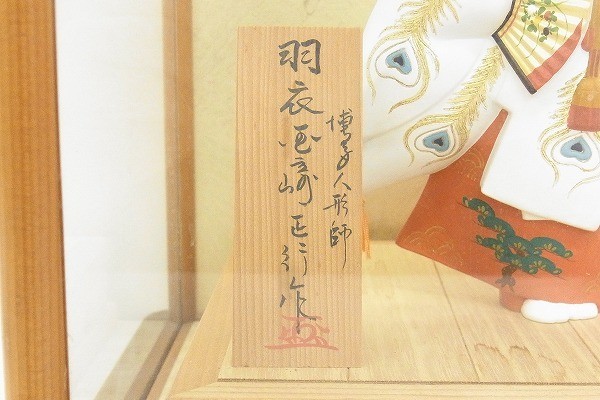 博多人形師
羽衣 西﨑正行作